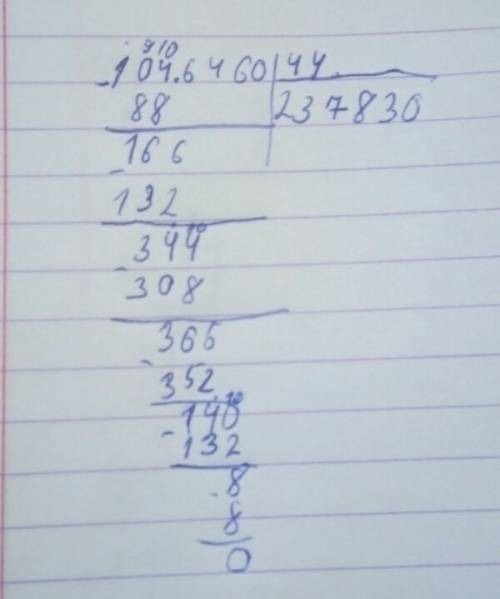 9 10
104.6460 44
88 237830
166
132
344 10
308
366
352
140 10
132
8
8
0